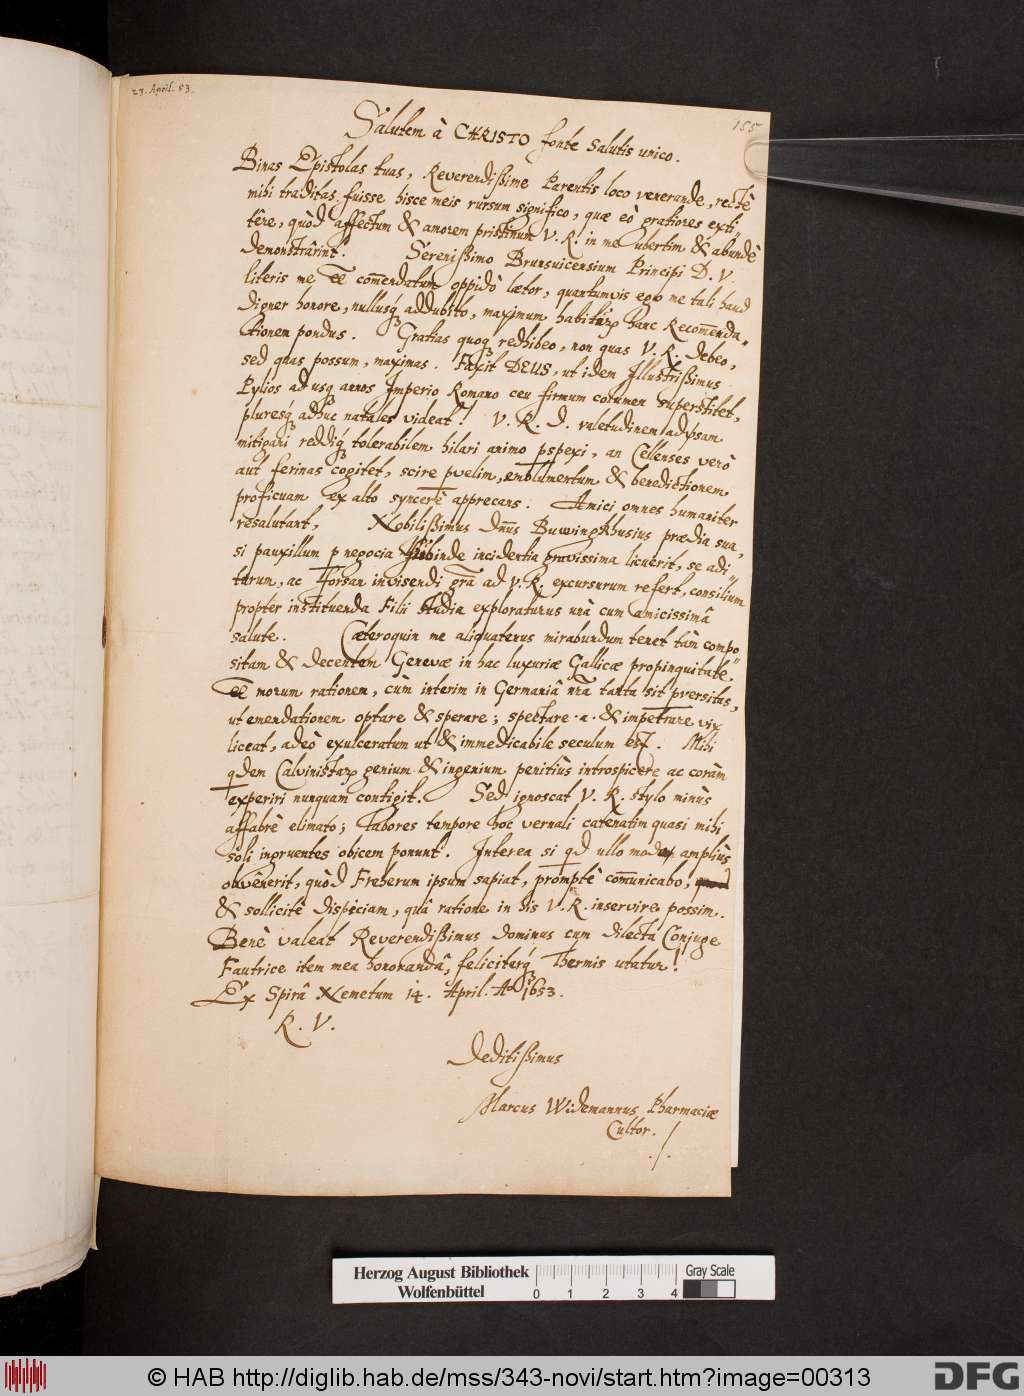 23. April. 53.
155
Salutem à CHRISTO fonte salutis unico.
Binas Epistolas tuas, Reverendißime Parentis loco venerande, rectè
mihi traditas fuisse hisce meis rursum significo, quæ eò gratiores exti„
têre, quòd affectum & amorem pristinum V. R. in me ubertim & abundè
demonstrârint. Serenißimo Brunsvicensium Principi D. V.
literis me ee͞ com̄endatum oppidò lætor, quantumvis ego me tali haud
digner honore, nullusq́ꝫ addubito, maximum habitur̄ hanc Recom̄enda„
tionem pondus. Gratias quoqꝫ redhibeo, non quas V. R. debeo,
sed quas possum, maximas. Faxit DEUS, ut idem Illustrißimus
Pylios ad usqꝫ annos Imperio Romano ceu firmum columen superstitet,
pluresq́ꝫ adhuc natales videat! V. R. D. valetudinem adversam
mitigari reddiq́ꝫ tolerabilem hilari animo ꝑspexi, an Cellenses verò
aut ferinas cogitet, scire pvelim, emolumentum & benedictionem
proficuam ex alto syncerè apprecans. Amici omnes humaniter
resalutant. Nobilißimus Dn̄us BuwingKhusius prædia sua,
si pauxillum ꝑ negocia subinde incidentia gravissima licuerit, se adi„
turum, ac forsan invisendi gr̄a ad V. R. excursurum refert, consilium
propter instituenda Filii studia exploraturus unà cum amicissimâ
salute. Cæteroquin me aliquatenus mirabundum tenet tàm compo„
sitam & decentem Genevæ in hac luxuriæ Gallicæ propinquitate
ee͞ morum rationem, cùm interim in Germaniâ nr̄a tanta sit ꝑversitas,
ut emendationem optare & sperare; spectare .a. & impetrare vix
liceat, adeò exulceratum ut & immedicabile seculum est. Mihi
qdem Calvinistar̄ genium & ingenium penitiùs introspicere ac coràm
experiri nunquam contigit. Sed ignoscat V. R. stylo minùs
affabrè elimato; labores tempore hoc vernali catenatim quasi mihi
soli ingruentes obicem ponunt. Interea si qd ullo modo ampliùs
obvênerit, quòd Freherum ipsum sapiat, promptè com̄unicabo,
& sollicitè dispiciam, quâ ratione in his V. R. inservire possim.
Benè valeat Reverendißimus Dominus cum dilectâ Conjuge
Fautrice item mea honorandâ, feliciterq́ꝫ Thermis utatur!
Ex Spirâ Nemetum 14. April. Aº 1653.
R. V.
Deditißimus
Marcus Widemannus Pharmaciæ
Cultor. ./.
Herzog August Bibliothek
Wolfenbüttel
0 1 2 3 4
Gray Scale
© HAB http://diglib.hab.de/mss/343-novi/start.htm?image=00313
DFG